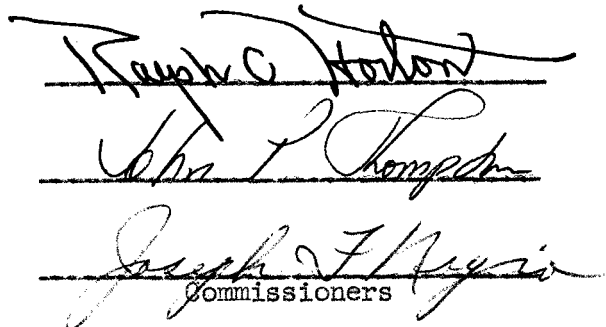 Ralph C Horton
John P Thompson
Joseph F
Commissioners